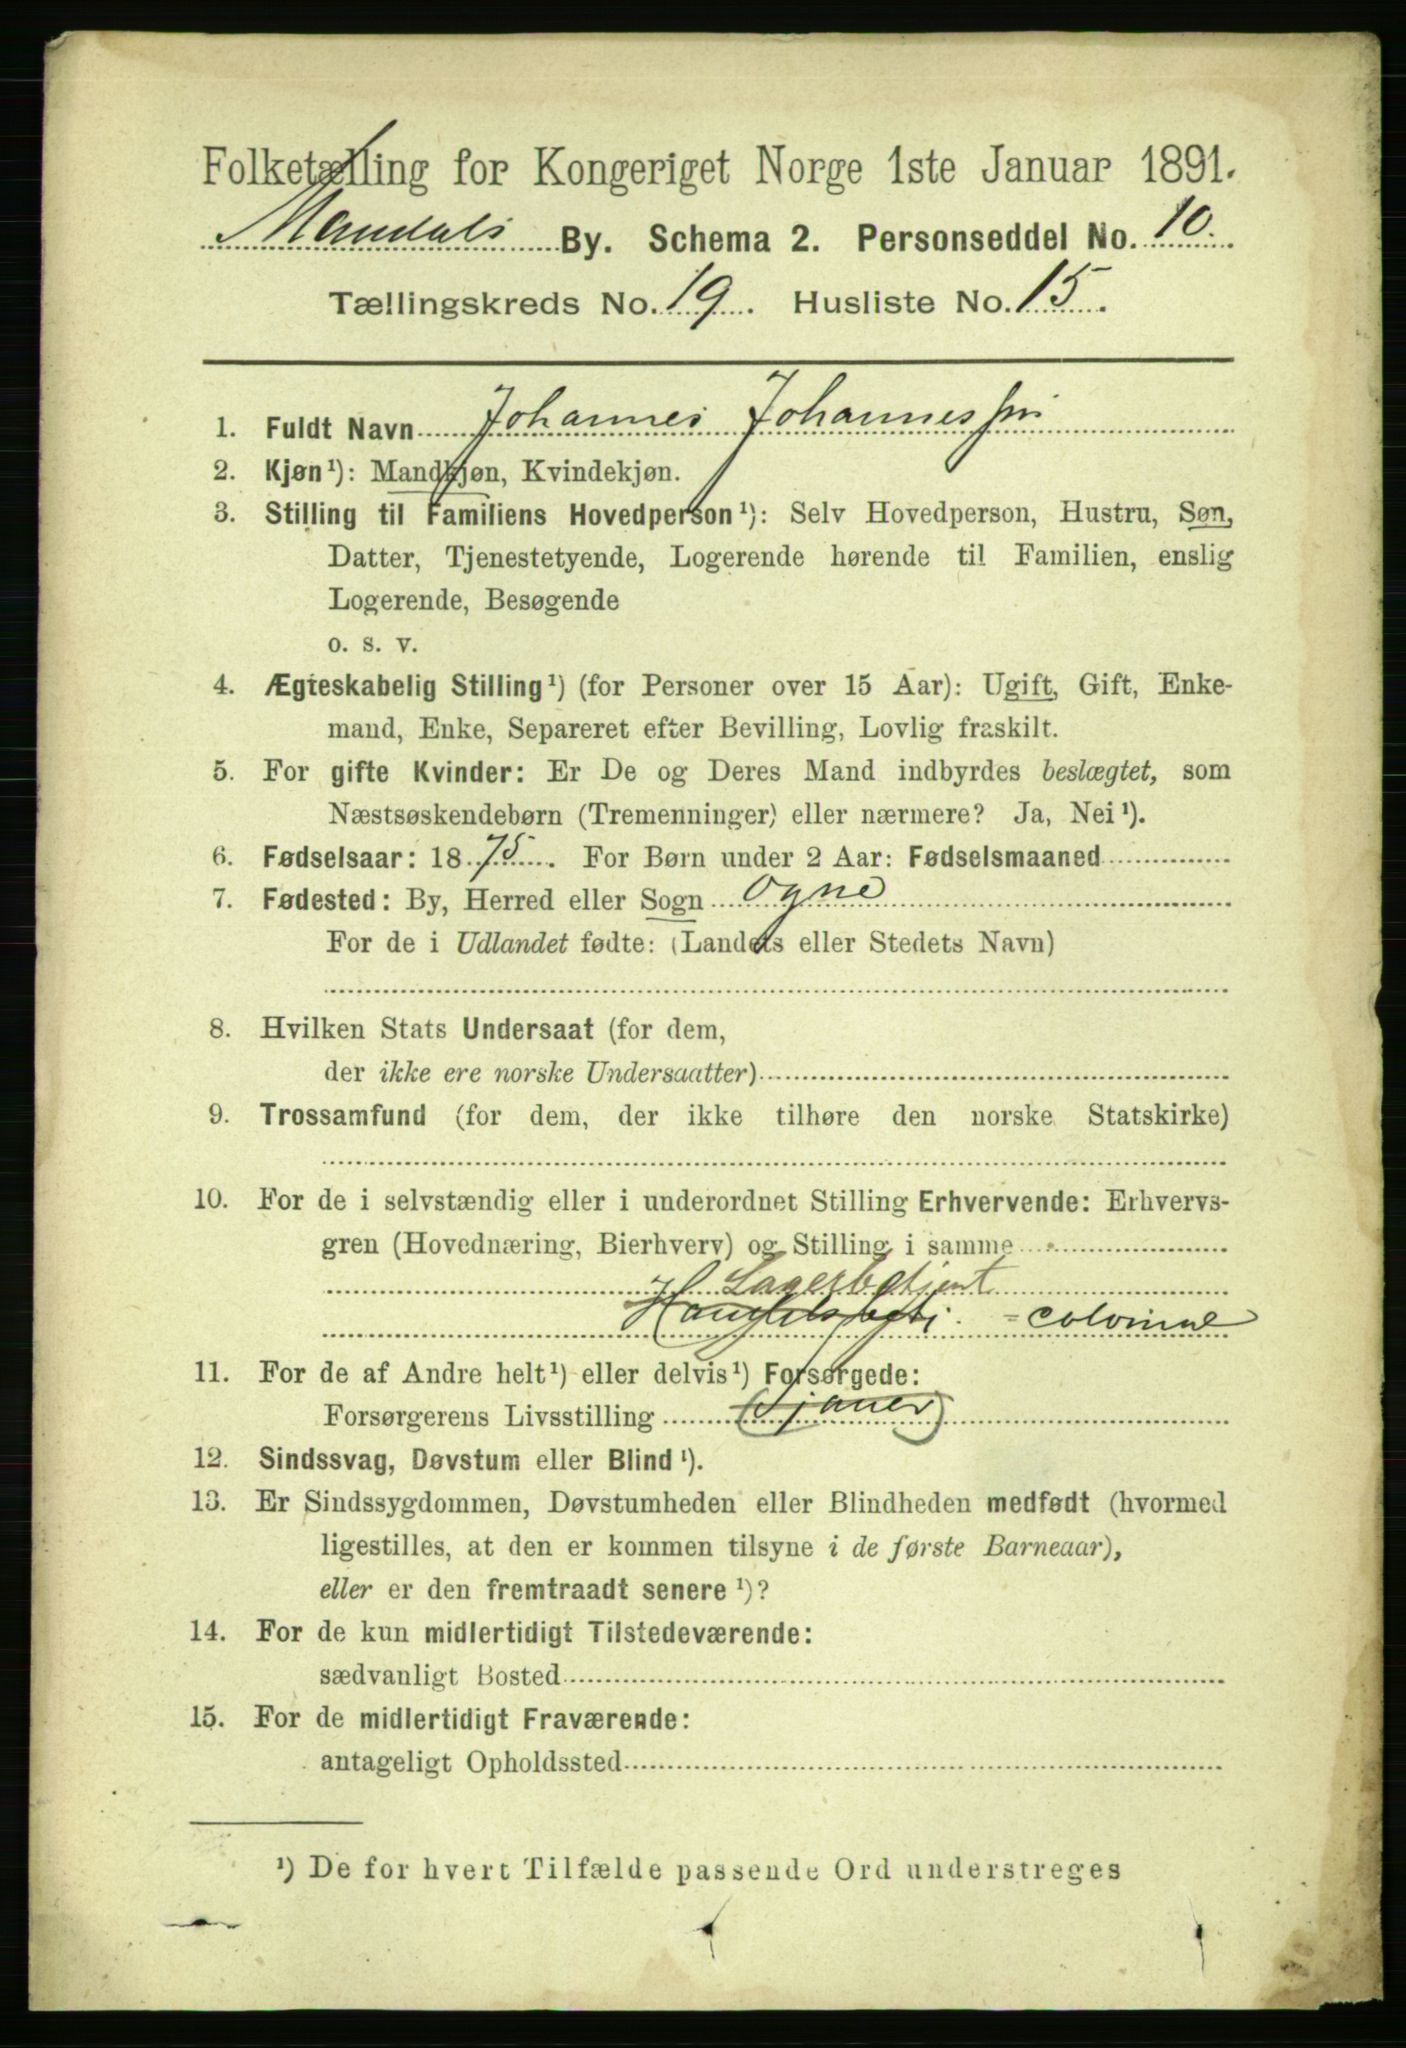 Folketælling for Kongeriget Norge 1ste Januar 1891.
Mandals By. Schema 2. Personseddel No. 10.
Tællingskreds No. 19. Husliste No. 15.
1. Fuldt Navn Johannes Johannessen
2. Kjøn¹): Mandkjøn, Kvindekjøn.
3. Stilling til Familiens Hovedperson¹): Selv Hovedperson, Hustru, Søn,
Datter, Tjenestetyende, Logerende hørende til Familien, enslig
Logerende, Besøgende
o. s. v.
4. Ægteskabelig Stilling¹) (for Personer over 15 Aar): Ugift, Gift, Enke-
mand, Enke, Separeret efter Bevilling, Lovlig fraskilt.
5. For gifte Kvinder: Er De og Deres Mand indbyrdes beslægtet, som
Næstsøskendebørn (Tremenninger) eller nærmere? Ja, Nei¹).
6. Fødselsaar: 1875. For Børn under 2 Aar: Fødselsmaaned
7. Fødested: By, Herred eller Sogn Ogne
For de i Udlandet fødte: (Landets eller Stedets Navn)
8. Hvilken Stats Undersaat (for dem,
der ikke ere norske Undersaatter)
9. Trossamfund (for dem, der ikke tilhøre den norske Statskirke)
10. For de i selvstændig eller i underordnet Stilling Erhvervende: Erhvervs-
gren (Hovednæring, Bierhverv) og Stilling i samme
Lagerbetjent
Handelsbetj. - colonial
11. For de af Andre helt¹) eller delvis¹) Forsørgede:
Forsørgerens Livsstilling (Sjauer)
12. Sindssvag, Døvstum eller Blind¹).
13. Er Sindssygdommen, Døvstumheden eller Blindheden medfødt (hvormed
ligestilles, at den er kommen tilsyne i de første Barneaar),
eller er den fremtraadt senere¹)?
14. For de kun midlertidigt Tilstedeværende:
sædvanligt Bosted
15. For de midlertidigt Fraværende:
antageligt Opholdssted
¹) De for hvert Tilfælde passende Ord understreges